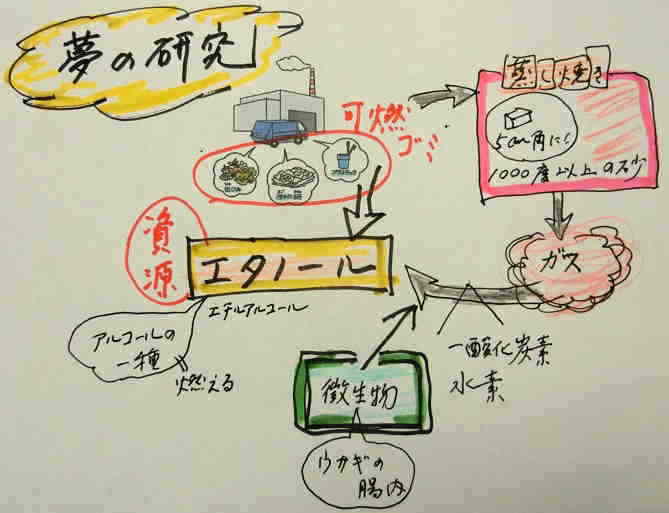 夢の研究
可燃
ゴミ
蒸し焼き
5cm角にし
1000度以上の砂
資源
エタノール
エチルアルコール
アルコールの
一種
燃える
ガス
一酸化炭素
水素
微生物
ウサギの
腸内